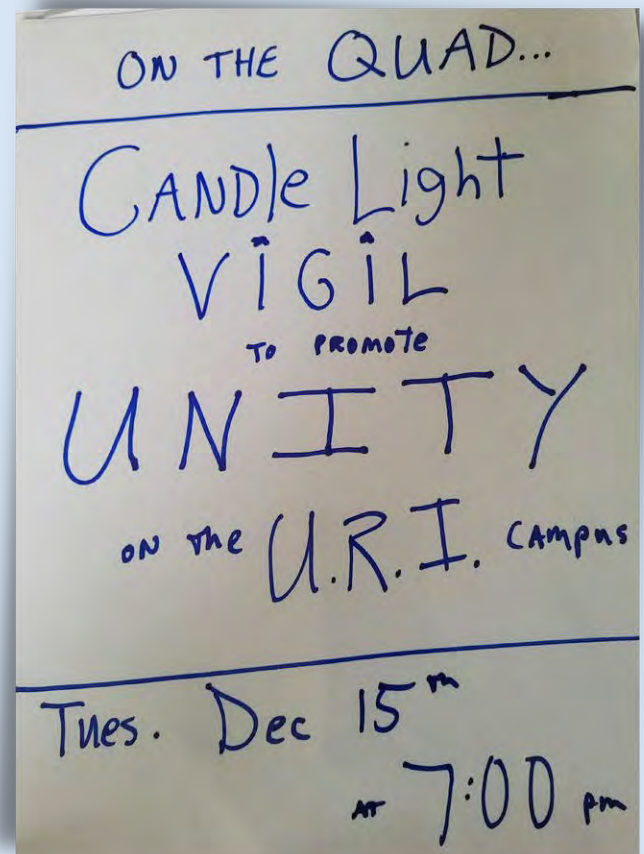 ON THE QUAD...
CANDle Light
ViGiL
TO PROMOTe
UNITY
ON The U.R.I. CAMpus
Tues. Dec 15th
AT 7:00 pm